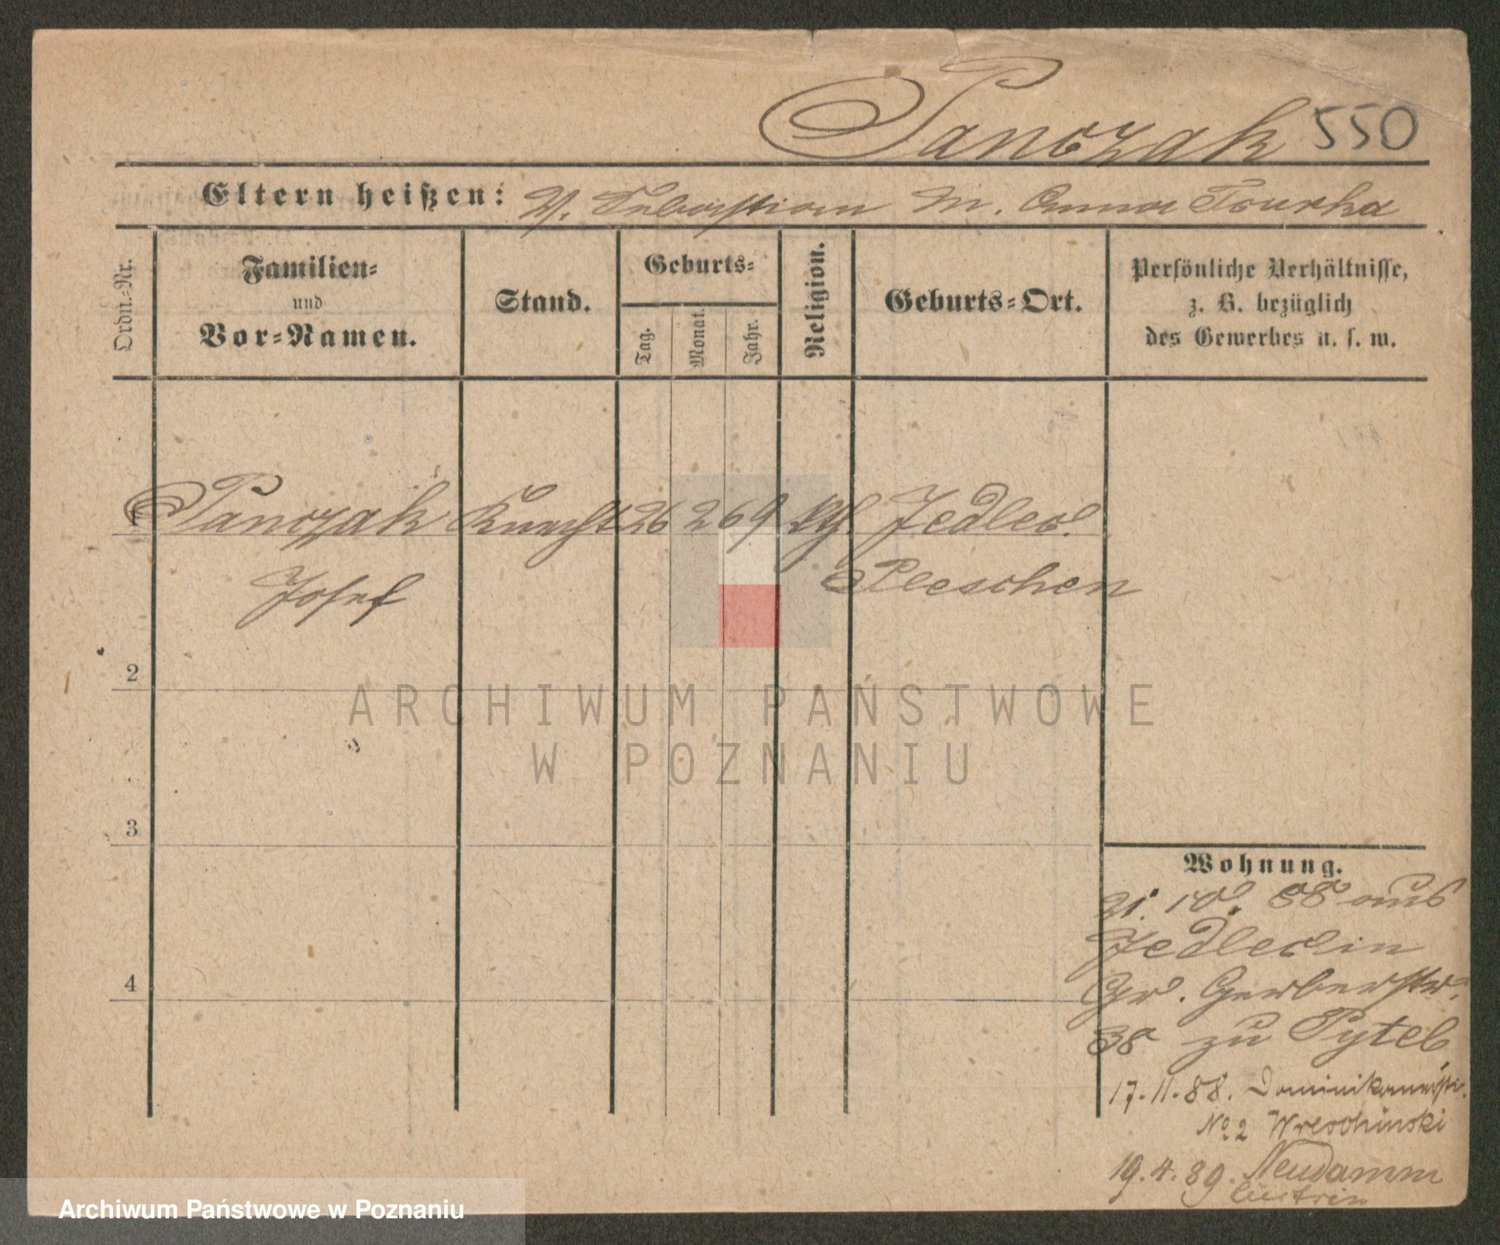 Panczak 550
Eltern heißen: V. Sebastian M. Anna Tourka
Ordn.-Nr.
Familien-
und
Vor-Namen.
Stand.
Geburts-
Tag.
Monat.
Jahr.
Religion.
Geburts-Ort.
Persönliche Verhältnisse,
z. B. bezüglich
des Gewerbes u. s. w.
1 Panczak Knecht 26 2 69 kth. Jedlec
Josef Pleschen
2
3
4
Wohnung.
21. 10. 88 aus
Jedlec in
Gr. Gerberstr.
38 zu Pytel
17.11.88. Dominikanerstr.
No 2 Wreschinski
19.4.89. Neudamm
Cüstrin
ARCHIWUM PAŃSTWOWE
W POZNANIU
Archiwum Państwowe w Poznaniu